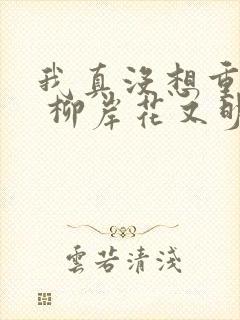 我真没想重
柳岸花又明
雲若清淺